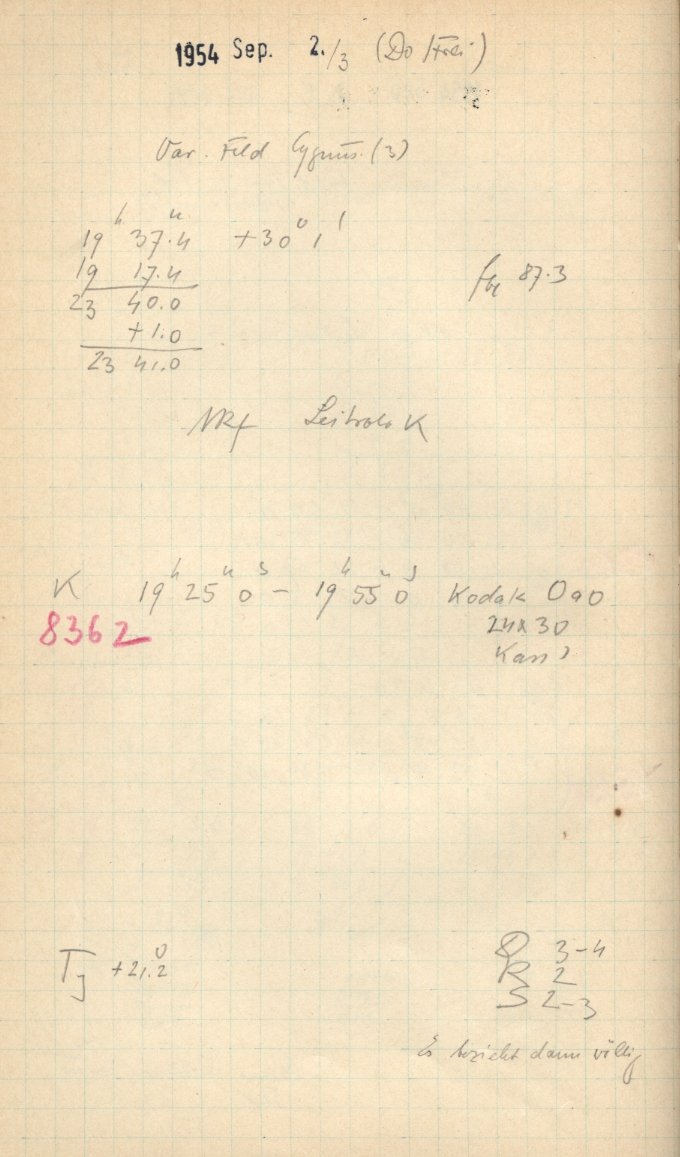 1954 Sep. 2./3 (Do/Frei.)
Var. Feld Cygnus (3)
19ʰ 37.4ᵐ +30⁰ 1'
19 17.4
23 40.0
+1.0
23 41.0
87.3
K
K 19ʰ 25ᵐ 0ˢ – 19ʰ 55ᵐ 0ˢ Kodak OaO
8362 24x30
Kass
T +21.2⁰
Q 3-4
R 2
S 2-3
Es bezieht dann völlig